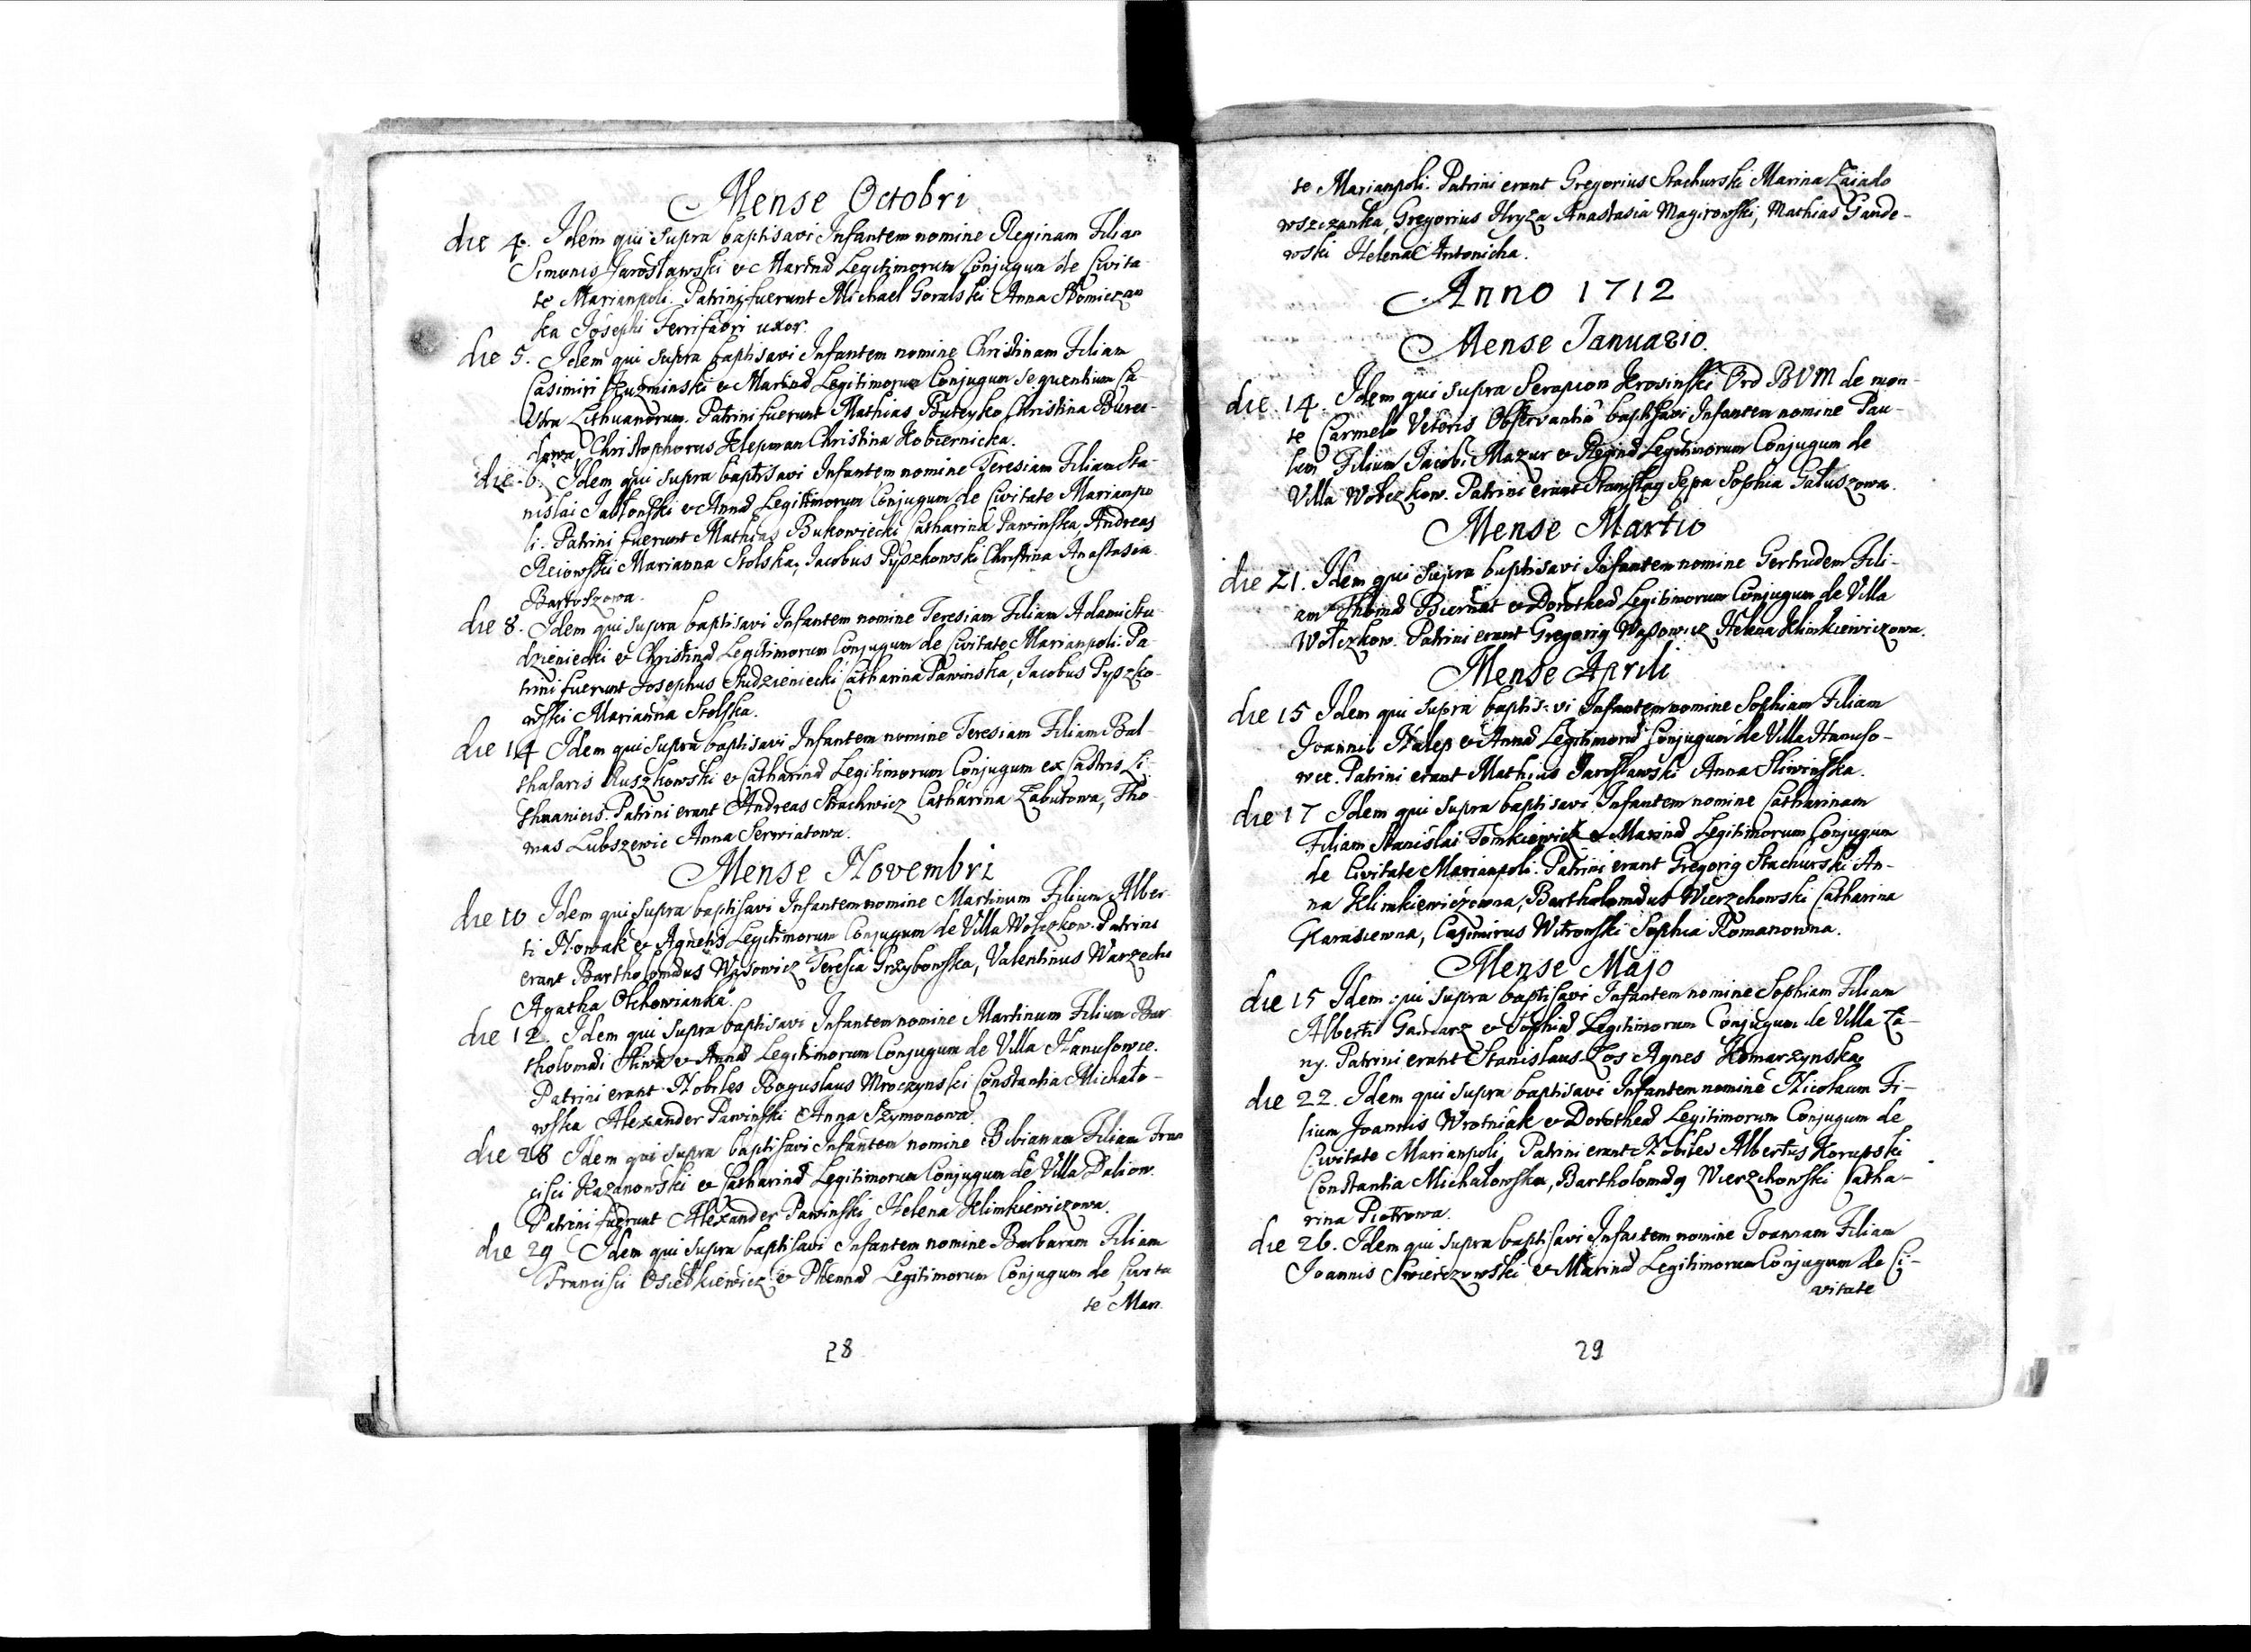 Mense Octobri
die 4. Idem qui supra baptisavi Infantem nomine Reginam Filiam
Simonis Jarosławski & Marinæ Legitimorum Conjugum de Civita-
te Marianpoli. Patrini fuerunt Michael Goralski Anna
ska Josephi Ferrifabri uxor.
die 5. Idem qui supra baptisavi Infantem nomine Christinam Filiam
Casimiri Kuzminski & Marinæ Legitimorum Conjugum sequentium Ca-
stra Lithuanorum. Patrini fuerunt Mathias Buteyko Christina
Christophorus Klepman Christina Kobiernicka.
die 6. Idem qui supra baptisavi Infantem nomine Teresiam Filiam Sta-
nislai Jabłonski & Annæ Legitimorum Conjugum de Civitate Marianpo
li. Patrini fuerunt Mathias Bukowiecki Catharina Pawinska, Andreas
Reiowski Marianna Stolska, Jacobus Pyszkowski Christina Anastasia
Bartoszowa.
die 8. Idem qui supra baptisavi Infantem nomine Teresiam Filiam Adami Stu-
dzieniecki & Christinæ Legitimorum Conjugum de Civitate Marianpoli. Pa-
trini fuerunt Josephus Studzieniecki Catharina Pawinska, Jacobus Pyszko-
wski Marianna Stolska.
die 14 Idem qui supra baptisavi Infantem nomine Teresiam Filiam Bal-
thasaris Ruszkowski & Catharinæ Legitimorum Conjugum ex Castris Li-
thuanicis. Patrini erant Andreas Strachwicz Catharina Zabutowa, Tho-
mas Lubszewic Anna Serwiatowa.
Mense Novembri
die 10 Idem qui supra baptisavi Infantem nomine Martinum Filium Alber-
ti Nowak & Agnetis Legitimorum Conjugum de Villa Wołczkow. Patrini
erant Bartholomæus Wąsowicz Teresia Grzybowska, Valentinus Warzecha
Agatha Olchowianka.
die 12. Idem qui supra baptisavi Infantem nomine Martinum Filium Bar-
tholomæi Sliwa & Annæ Legitimorum Conjugum de Villa Hanusowce.
Patrini erant Nobiles Boguslaus Mroczynski Constantia Michało-
wska Alexander Pawinski & Anna Szymonowa.
die 28 Idem qui supra baptisavi Infantem nomine Bibianam Filiam Fran
cisci Kazanowski & Catharinæ Legitimorum Conjugum de Villa Daliow.
Patrini fuerunt Alexander Pawinski Helena Klimkiewiczowa.
die 29 Idem qui supra baptisavi Infantem nomine Barbaram Filiam
Francisci Osietkiewicz & Legitimorum Conjugum de Civita
te Mari
28
te Marianpoli. Patrini erant Gregorius Stachurski Marina Zaiado
wszczanka, Gregorius Hryza Anastasia Magirowski, Mathias Gande-
wski Helena Antonicha.
Anno 1712
Mense Januario.
die 14. Idem qui supra Serapion Krosinski Ord BVM de mon-
te Carmelo Veteris Observantiæ baptisavi Infantem nomine Pau-
lum Filium Jacobi Mazur & Reginæ Legitimorum Conjugum de
Villa Wołczkow. Patrini erant Stanislaus Sepa Sophia Gałuszowa.
Mense Martio
die 21. Idem qui supra baptisavi Infantem nomine Gertrudem Fili-
am Thomæ Biernat & Dorotheæ Legitimorum Conjugum de Villa
Wołczkow. Patrini erant Gregorius Wąsowicz Helena Klimkiewiczowa.
Mense Aprili
die 15 Idem qui supra baptisavi Infantem nomine Sophiam Filiam
Joannis Nalep & Annæ Legitimorum Conjugum de Villa Hanuso-
wce. Patrini erant Mathias Jarosławski Anna Sliwinska.
die 17 Idem qui supra baptisavi Infantem nomine Catharinam
Filiam Stanislai Tomkiewicz & Marinæ Legitimorum Conjugum
de Civitate Marianpoli. Patrini erant Gregorius Stachurski An-
na Klimkiewiczowna, Bartholomæus Wierzchowski Catharina
Karasiewna, Casimirus Witrowski Sophia Romanowna.
Mense Majo
die 15 Idem qui supra baptisavi Infantem nomine Sophiam Filiam
Alberti Garncarz & Sophiæ Legitimorum Conjugum de Villa Ła-
ny. Patrini erant Stanislaus Łos Agnes Komarzynska.
die 22. Idem qui supra baptisavi Infantem nomine Nicolaum Fi-
lium Joannis Wrotniak & Dorotheæ Legitimorum Conjugum de
Civitate Marianpoli, Patrini erant Nobiles Albertus Korupski
Constantia Michałowska, Bartholomæus Wierzchowski Catha-
rina Piotrowa.
die 26. Idem qui supra baptisavi Infantem nomine Joannam Filiam
Joannis Swierczewski & Marinæ Legitimorum Conjugum de Ci-
vitate
29